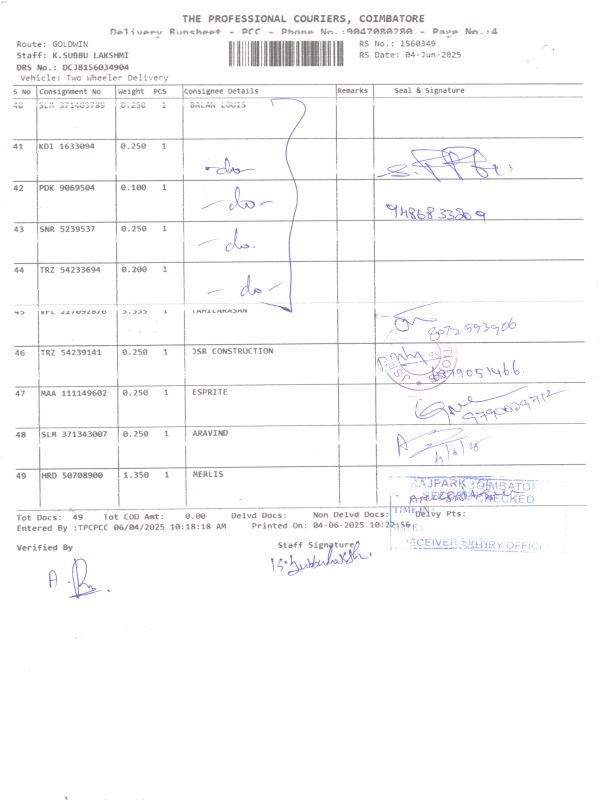 THE PROFESSIONAL COURIERS, COIMBATORE
Delivery Runsheet - PCC - Phone No.:9047080280 - Page No.:4
Route: GOLDWIN
RS No.: 1560349
Staff: K.SUBBU LAKSHMI
RS Date: 04-Jun-2025
DRS No.: DCJB1560349O4
Vehicle: Two Wheeler Delivery
S No Consignment No Weight PCS Consignee Details Remarks Seal & Signature
40 SLM 371405789 0.250 1 BALAN LOUIS
41 KDI 1633094 0.250 1
-do-
42 PDK 9069504 0.100 1
-do- 9486833209
43 SNR 5239537 0.250 1
-do.
44 TRZ 54233694 0.200 1
-do-
45 VPL 227092876 3.335 1 TAMILARASAN
8072593906
46 TRZ 54239141 0.250 1 JSR CONSTRUCTION
47 MAA 111149602 0.250 1 ESPRITE
9790029712
48 SLM 371343007 0.250 1 ARAVIND
4/6/25
49 HRD 50708900 1.350 1 MERLIS
RAJPARK COIMBATORE
CHECKED
TIME IN
Tot Docs: 49 Tot COD Amt: 0.00 Delvd Docs: Non Delvd Docs: Delvy Pts:
Entered By :TPCPCC 06/04/2025 10:18:18 AM Printed On: 04-06-2025 10:22:56
RECEIVER OFFICER
Verified By
Staff Signature
K. Subbulakshmi